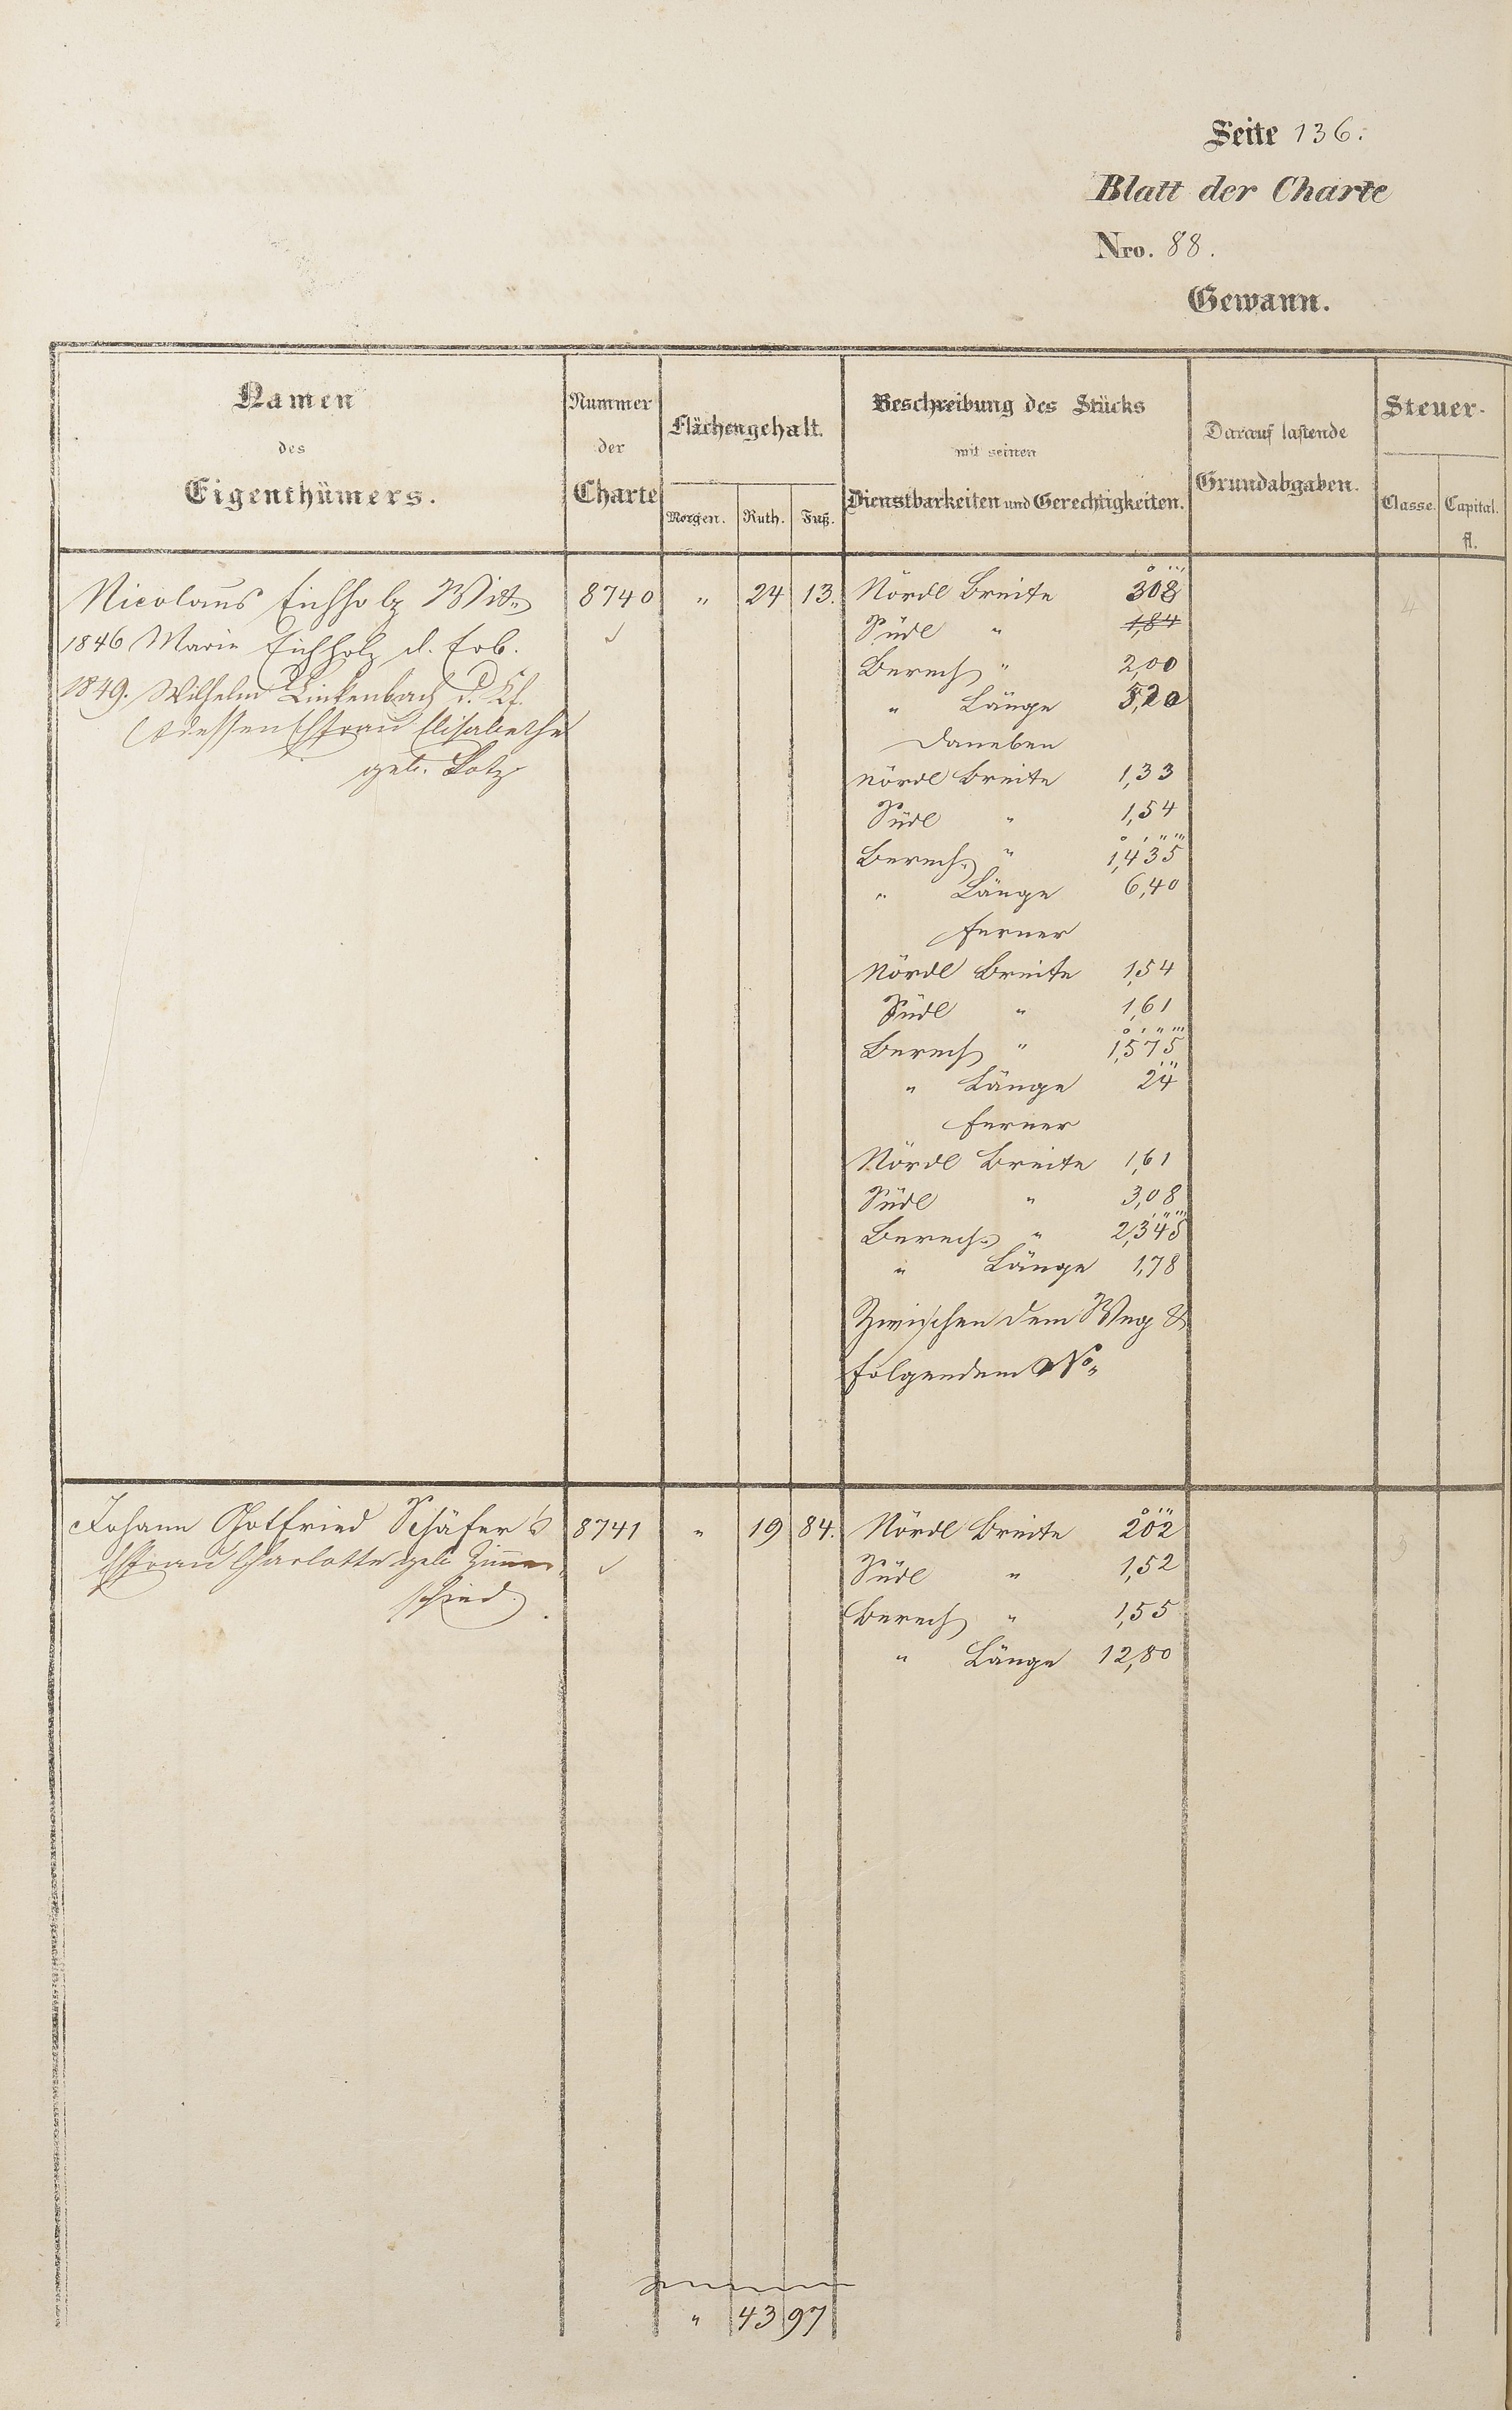 Seite 136.
Blatt der Charte
Nro. 88.
Gewann.
Namen
des
Eigenthümers.
Nummer
der
Charte
Flächengehalt.
Morgen. Ruth. Fuß.
Beschreibung des Stücks
mit seinen
Dienstbarkeiten und Gerechtigkeiten.
Darauf lastende
Grundabgaben.
Steuer-
Classe. Capital.
fl.
Nicolaus Eichholz Witt. 8740 " 24 13. Nördl Breite 308
1846 Marie Eichholz d. Erb. Südl " 1,84
Berech " 2,00
1849. Wilhelm Linkenbach d. Kf. " Länge 5,20
dessen Ehfrau Elisabetha Daneben
geb. Lotz Nördl Breite 1,33
Südl " 1,54
Berech. " 1,435
" Länge 6,40
ferner
Nördl Breite 1,54
Südl " 1,61
Berech " 1,575
" Länge 24
ferner
Nördl Breite 1,61
Südl " 3,08
Berech. " 2,345
" Länge 1,78
Zwischen dem Weg &
folgendem No.
4
Johann Gotfried Schäfer's 8741 " 19 84. Nördl Breite 202
Ehfrau Charlotte geb Zimmer- Südl " 1,52
schied. Berech " 1,55
" Länge 12,80
" 43 97